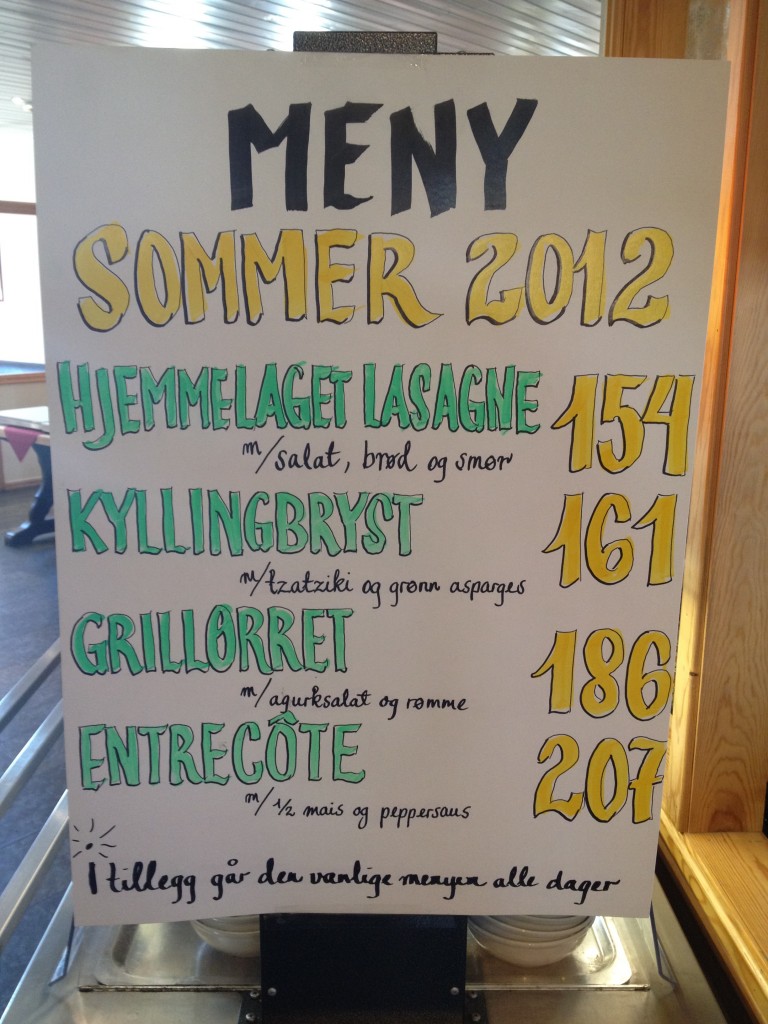 MENY
SOMMER 2012
HJEMMELAGET LASAGNE 154
m/salat, brød og smør
KYLLINGBRYST 161
m/tzatziki og grønn asparges
GRILLØRRET 186
m/agurksalat og rømme
ENTRECÔTE 207
m/ 1/2 mais og peppersaus
I tillegg går den vanlige menyen alle dager